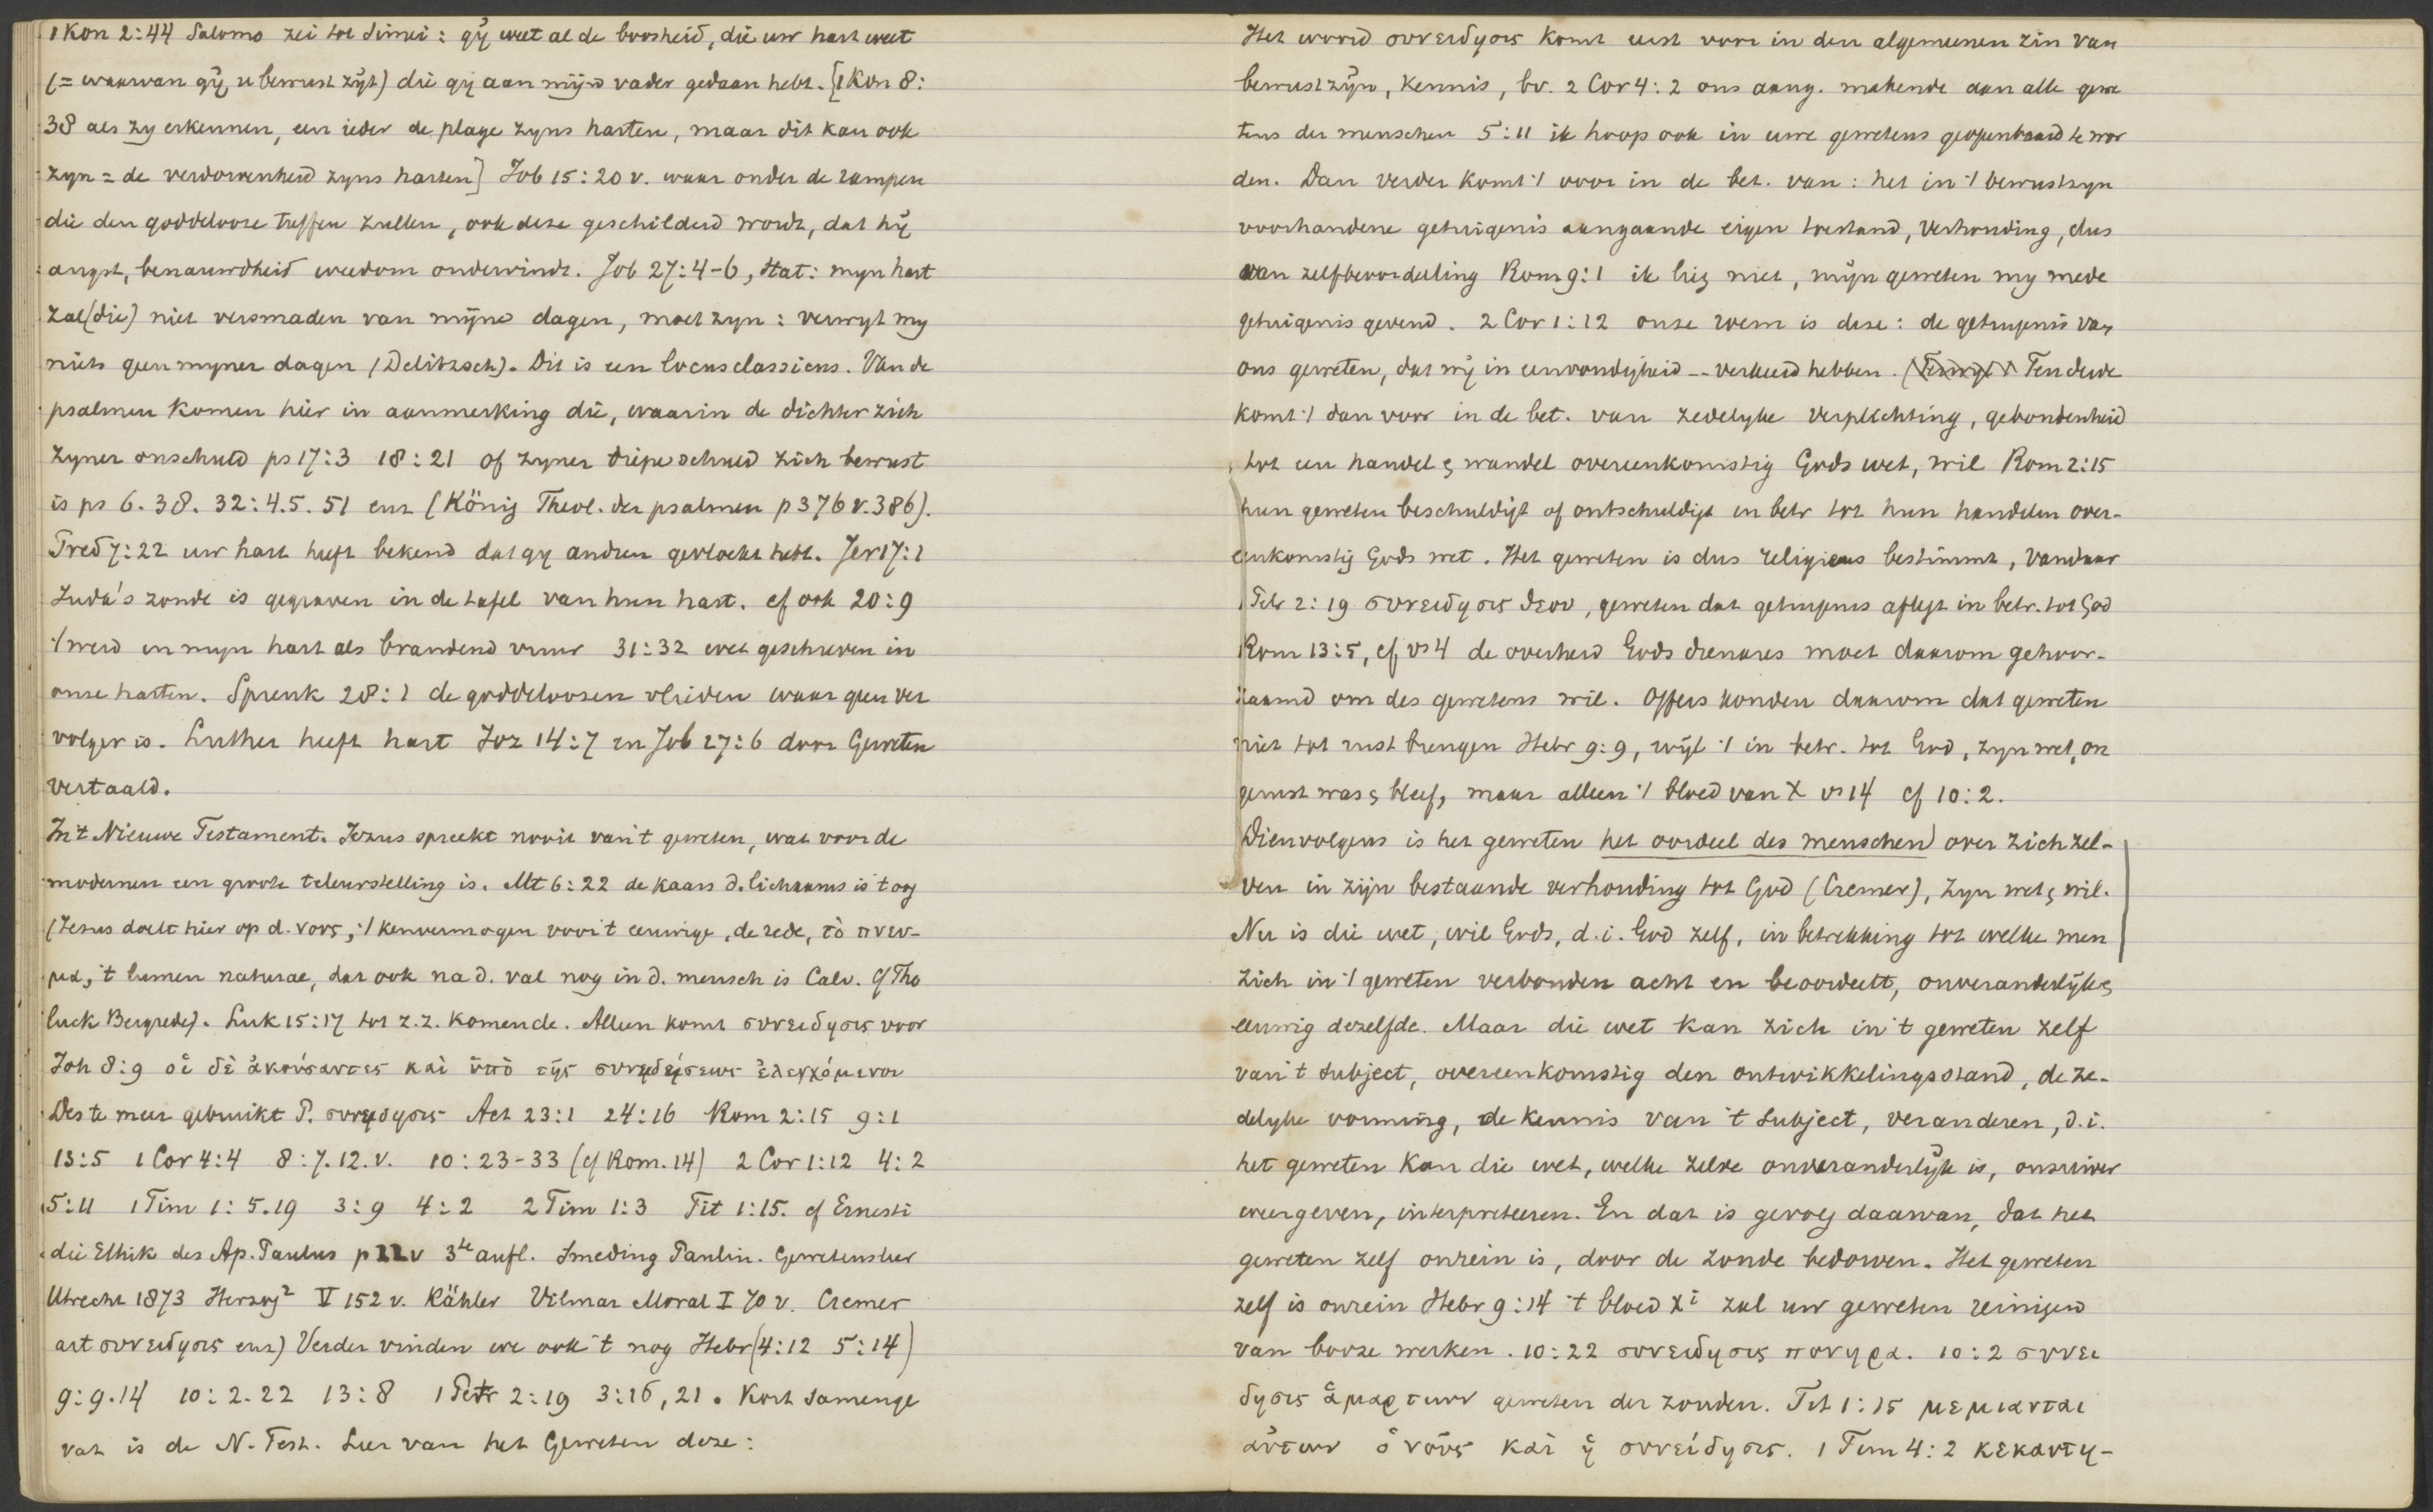 1 Kon 2:44 Salomo zei tot Simei: gy̆ weet al de boosheid, die uw hart weet
(= waarvan gy̆ u bewust zy̆t) die gy aan mijn vader gedaan hebt. [1 Kon 8:
38 als zy erkennen, een ieder de plage zyns harten, maar dit kan ook
zyn = de verdorvenheid zyns harten] Job 15:20 v. waar onder de rampen
die den goddelooze treffen zullen, ook deze geschilderd wordt, dat hy̆
angst, benauwdheid weedom ondervindt. Job 27:4-6, Stat: myn hart
zal (die) niet versmaden van mijne dagen, moet zyn: verwyt my
niets geen myner dagen (Delitzsch). Dit is een locus classicus. Van de
psalmen komen hier in aanmerking die, waarin de dichter zich
zyner onschuld ps 17:3 18:21 of zyner diepe schuld zich bewust
is ps 6. 38. 32:4.5. 51 enz (König Theol. der psalmen p 376 v. 386).
Pred 7:22 uw hart heeft bekend dat gy andren gevloekt hebt. Jer 17:1
Juda's zonde is gegraven in de tafel van hun hart. cf ook 20:9
't werd in myn hart als brandend vuur 31:32 wet geschreven in
onze harten. Spreuk 28:1 de goddeloozen vlieden waar geen ver
volger is. Luther heeft hart Joz 14:7 en Job 27:6 door Geweten
vertaald.
In't Nieuwe Testament. Jezus spreekt nooit van't geweten, wat voor de
modernen een groote teleurstelling is. Mt 6:22 de kaars d. lichaams is 't oog
(Jezus doelt hier op d. νους, 't kenvermogen voor't eeuwige, de rede, τὸ πνευ-
μα, 't lumen naturae, dat ook na d. val nog in d. mensch is Calv. cf Tho
luck Bergrede). Luk 15:17 tot z.z. komende. Alleen komt συνειδησις voor
Joh 8:9 οἱ δὲ ἀκούσαντες καὶ ὑπὸ τῆς συνειδήσεως ἐλεγχόμενοι
Des te meer gebruikt P. συνειδησις Act 23:1 24:16 Rom 2:15 9:1
13:5 1 Cor 4:4 8:7.12.v. 10:23-33 (cf Rom. 14) 2 Cor 1:12 4:2
5:11 1 Tim 1:5.19 3:9 4:2 2 Tim 1:3 Tit 1:15. cf Ernesti
die Ethik des Ap. Paulus p 22 v 3te aufl. Smeding Paulin. Gewetensleer
Utrecht 1873 Herzog² V 152 v. Kähler Vilmar Moral I 70 v. Cremer
art συνειδησις enz) Verder vinden we ook 't nog Hebr (4:12 5:14)
9:9.14 10:2.22 13:8 1 Petr 2:19 3:16, 21. Kort samenge
vat is de N. Test. Leer van het Geweten deze:
Het woord συνειδησις komt eerst voor in den algemeenen zin van
bewustzijn, kennis, bv. 2 Cor 4:2 ons aang. makende aan alle gewe
tens der menschen 5:11 ik hoop ook in uwe gewetens geopenbaard te wor
den. Dan verder komt 't voor in de bet. van: het in 't bewustzyn
voorhandene getuigenis aangaande eigen toestand, verhouding, dus
van zelfbeoordeeling Rom 9:1 ik lieg niet, mijn geweten my mede
getuigenis gevend. 2 Cor 1:12 onze roem is deze: de getuigenis van
ons geweten, dat wij in eenvoudigheid -- verkeerd hebben. Ten derde
komt 't dan voor in de bet. van zedelyke verplichting, gebondenheid
tot een handel & wandel overeenkomstig Gods wet, wil Rom 2:15
hun geweten beschuldigt of ontschuldigt in betr tot hun handelen over-
eenkomstig Gods wet. Het geweten is dus religieus bestimmt, vandaar
1 Petr 2:19 συνειδησις θεου, geweten dat getuigenis aflegt in betr. tot God
Rom 13:5, cf vs 4 de overheid Gods dienares moet daarom gehoor-
zaamd om des gewetens wil. Offers konden daarom dat geweten
niet tot rust brengen Hebr 9:9, wijl 't in betr. tot God, zyn wet, on
gerust was & bleef, maar alleen 't bloed van X vs 14 cf 10:2.
Dienvolgens is het geweten het oordeel des menschen over zichzel-
ven in zijn bestaande verhouding tot God (Cremer), zyn wet & wil.
Nu is die wet, wil Gods, d.i. God zelf, in betrekking tot welke men
zich in 't geweten verbonden acht en beoordeelt, onveranderlijk &
eeuwig dezelfde. Maar die wet kan zich in 't geweten zelf
van't subject, overeenkomstig den ontwikkelingsstand, de ze-
delyke vorming, de kennis van 't subject, veranderen, d.i.
het geweten kan die wet, welke zelve onveranderlijk is, onzuiver
weergeven, interpreteeren. En dat is gevolg daarvan, dat het
geweten zelf onrein is, door de zonde bedorven. Het geweten
zelf is onrein Hebr 9:14 't bloed Xi zal uw geweten reinigen
van booze werken. 10:22 συνειδησις πονηρα. 10:2 συνει
δησις ἁμαρτιων geweten der zonden. Tit 1:15 μεμιανται
αὐτων ὁ νοῦς καὶ ἡ συνείδησις. 1 Tim 4:2 κεκαυτη-